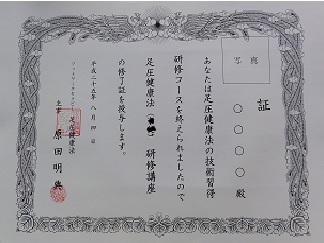 証
写真
〇〇〇〇殿
あなたは足圧健康法の技術習得
研修コースを終えられましたので
足圧健康法 研修講座
の修了証を授与します。
平成二十五年 八月 四日
足圧健康法
主宰 原田明典